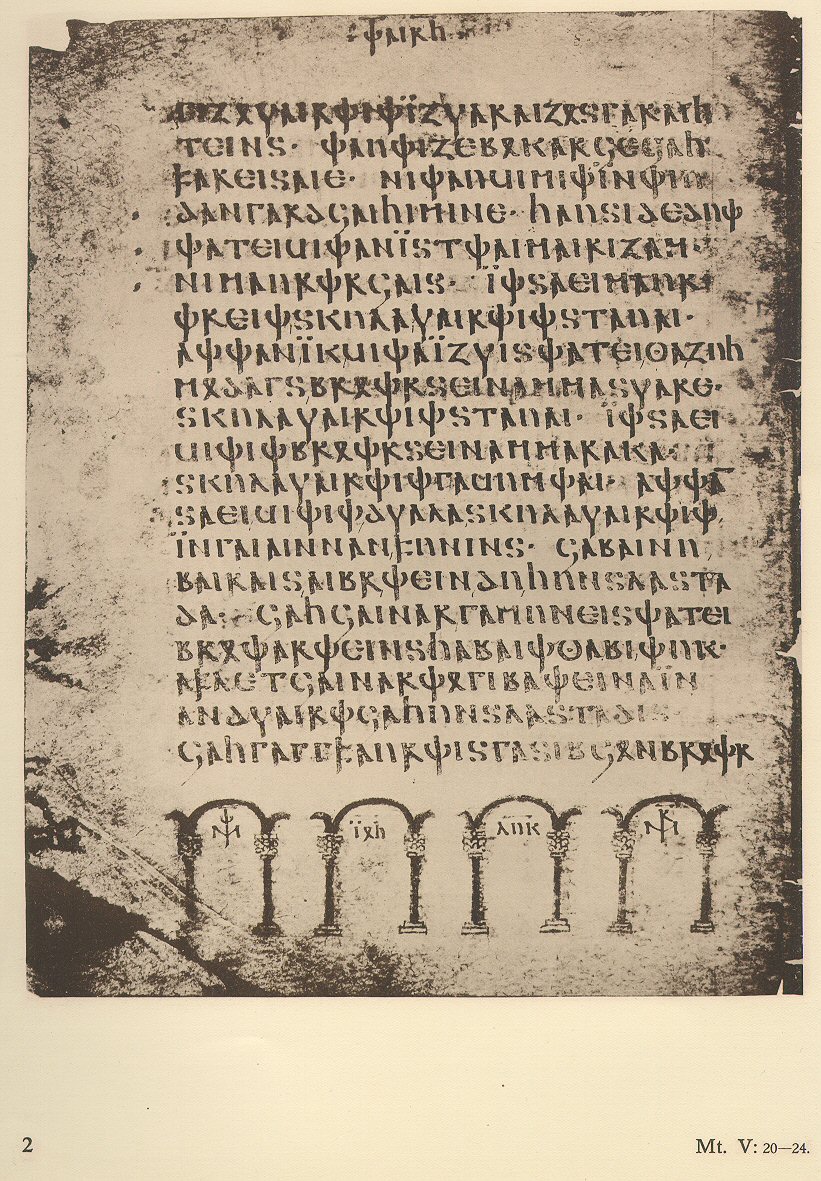 𐌸𐌰𐌹𐍂𐌷
𐌲𐌹𐌶𐍉𐍅𐌰𐌹𐍂𐌸𐌹𐌸𐌹̈𐌶𐍅𐌰𐍂𐌰𐌹𐌶𐍉𐍃𐌲𐌰𐍂𐌰𐌹𐌷
𐍄𐌴𐌹𐌽𐍃· 𐌸𐌰𐌿𐌸𐌹𐌶𐌴𐌱𐍉𐌺𐌰𐍂𐌾𐌴𐌾𐌰𐌷
𐍆𐌰𐍂𐌴𐌹𐍃𐌰𐌹𐌴· 𐌽𐌹𐌸𐌰𐌿𐌵𐌹𐌼𐌹𐌸𐌹̈𐌽𐌸𐌹𐌿
𐌳𐌰𐌽𐌲𐌰𐍂𐌳𐌾𐌰𐌹𐌷𐌹𐌼𐌹𐌽𐌴· 𐌷𐌰𐌿𐍃𐌹𐌳𐌴𐌳𐌿𐌸
𐌸𐌰𐍄𐌴𐌹𐌵𐌹𐌸𐌰𐌽𐌹̈𐍃𐍄𐌸𐌰𐌹𐌼𐌰𐌹𐍂𐌹𐌶𐌰𐌼·
𐌽𐌹𐌼𐌰𐌿𐍂𐌸𐍂𐌾𐌰𐌹𐍃· 𐌹̈𐌸𐍃𐌰𐌴𐌹𐌼𐌰𐌿𐍂
𐌸𐍂𐌴𐌹𐌸𐍃𐌺𐌿𐌻𐌰𐍅𐌰𐌹𐍂𐌸𐌹𐌸𐍃𐍄𐌰𐌿𐌰𐌹·
𐌰𐌸𐌸𐌰𐌽𐌹̈𐌺𐌵𐌹𐌸𐌰𐌹̈𐌶𐍅𐌹𐍃𐌸𐌰𐍄𐌴𐌹𐍈𐌰𐌶𐌿𐌷
𐌼𐍉𐌳𐌰𐌲𐍃𐌱𐍂𐍉𐌸𐍂𐍃𐌴𐌹𐌽𐌰𐌼𐌼𐌰𐍃𐍅𐌰𐍂𐌴·
𐍃𐌺𐌿𐌻𐌰𐍅𐌰𐌹𐍂𐌸𐌹𐌸𐍃𐍄𐌰𐌿𐌰𐌹· 𐌹̈𐌸𐍃𐌰𐌴𐌹
𐌵𐌹𐌸𐌹𐌸𐌱𐍂𐍉𐌸𐍂𐍃𐌴𐌹𐌽𐌰𐌼𐌼𐌰𐍂𐌰𐌺𐌰·
𐍃𐌺𐌿𐌻𐌰𐍅𐌰𐌹𐍂𐌸𐌹𐌸𐌲𐌰𐌵𐌿𐌼𐌸𐌰𐌹· 𐌰𐌸𐌸𐌰̅
𐍃𐌰𐌴𐌹𐌵𐌹𐌸𐌹𐌸𐌳𐍅𐌰𐌻𐌰𐍃𐌺𐌿𐌻𐌰𐍅𐌰𐌹𐍂𐌸𐌹𐌸
𐌹̈𐌽𐌲𐌰𐌹𐌰𐌹𐌽𐌽𐌰𐌽𐍆𐌿𐌽𐌹𐌽𐍃· 𐌾𐌰𐌱𐌰𐌹𐌽𐌿
𐌱𐌰𐌹𐍂𐌰𐌹𐍃𐌰𐌹𐌱𐍂𐌸𐌴𐌹𐌽𐌳𐌿𐌷𐌿𐌽𐍃𐌻𐌰𐍃𐍄𐌰
𐌳𐌰· 𐌾𐌰𐌷𐌾𐌰𐌹𐌽𐌰𐍂𐌲𐌰𐌼𐌿𐌽𐌴𐌹𐍃𐌸𐌰𐍄𐌴𐌹
𐌱𐍂𐍉𐌸𐌰𐍂𐌸𐌴𐌹𐌽𐍃𐌷𐌰𐌱𐌰𐌹𐌸𐍈𐌰𐌱𐌹𐌸𐌿𐌺·
𐌰𐍆𐌻𐌴𐍄𐌾𐌰𐌹𐌽𐌰𐍂𐌸𐍉𐌲𐌹𐌱𐌰𐌸𐌴𐌹𐌽𐌰𐌹̈𐌽
𐌰𐌽𐌳𐍅𐌰𐌹𐍂𐌸𐌾𐌰𐌷𐌿𐌽𐍃𐌻𐌰𐍃𐍄𐌰𐌳𐌹𐍃
𐌾𐌰𐌷𐌲𐌰𐌲𐌲𐍆𐌰𐌿𐍂𐌸𐌹𐍃𐌲𐌰𐍃𐌹𐌱𐌾𐍉𐌽𐌱𐍂𐍉𐌸𐍂
𐌹̈𐍉𐌷 𐌻𐌿𐌺
2 Mt. V: 20—24.